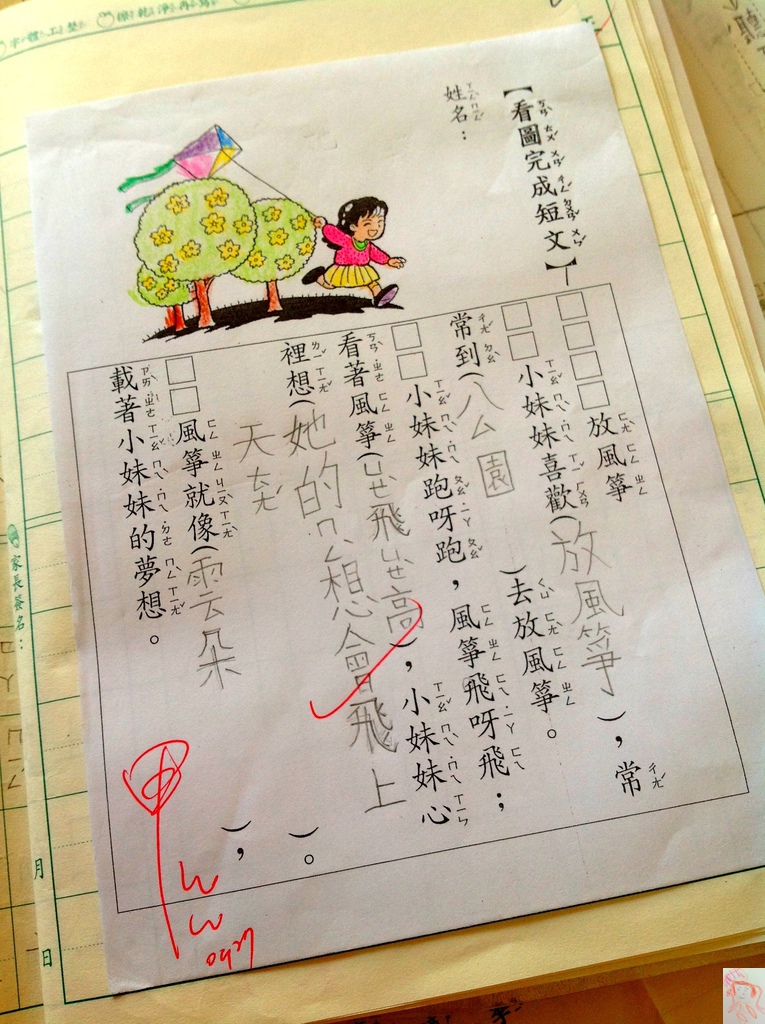 字體工整
保乾淨再寫
聽
【看圖完成短文】
姓名：
□□□□放風箏
□□小妹妹喜歡(放風箏)，常
常到(八ㄙ園)去放風箏。
□□小妹妹跑呀跑，風箏飛呀飛；
看著風箏(ㄩㄝ飛ㄩㄝ高)，小妹妹心
裡想(她的ㄇㄥ想會飛上
天ㄊㄤ)。
□□風箏就像(雲朵)，
載著小妹妹的夢想。
甲
0927
家長簽名：
月
日